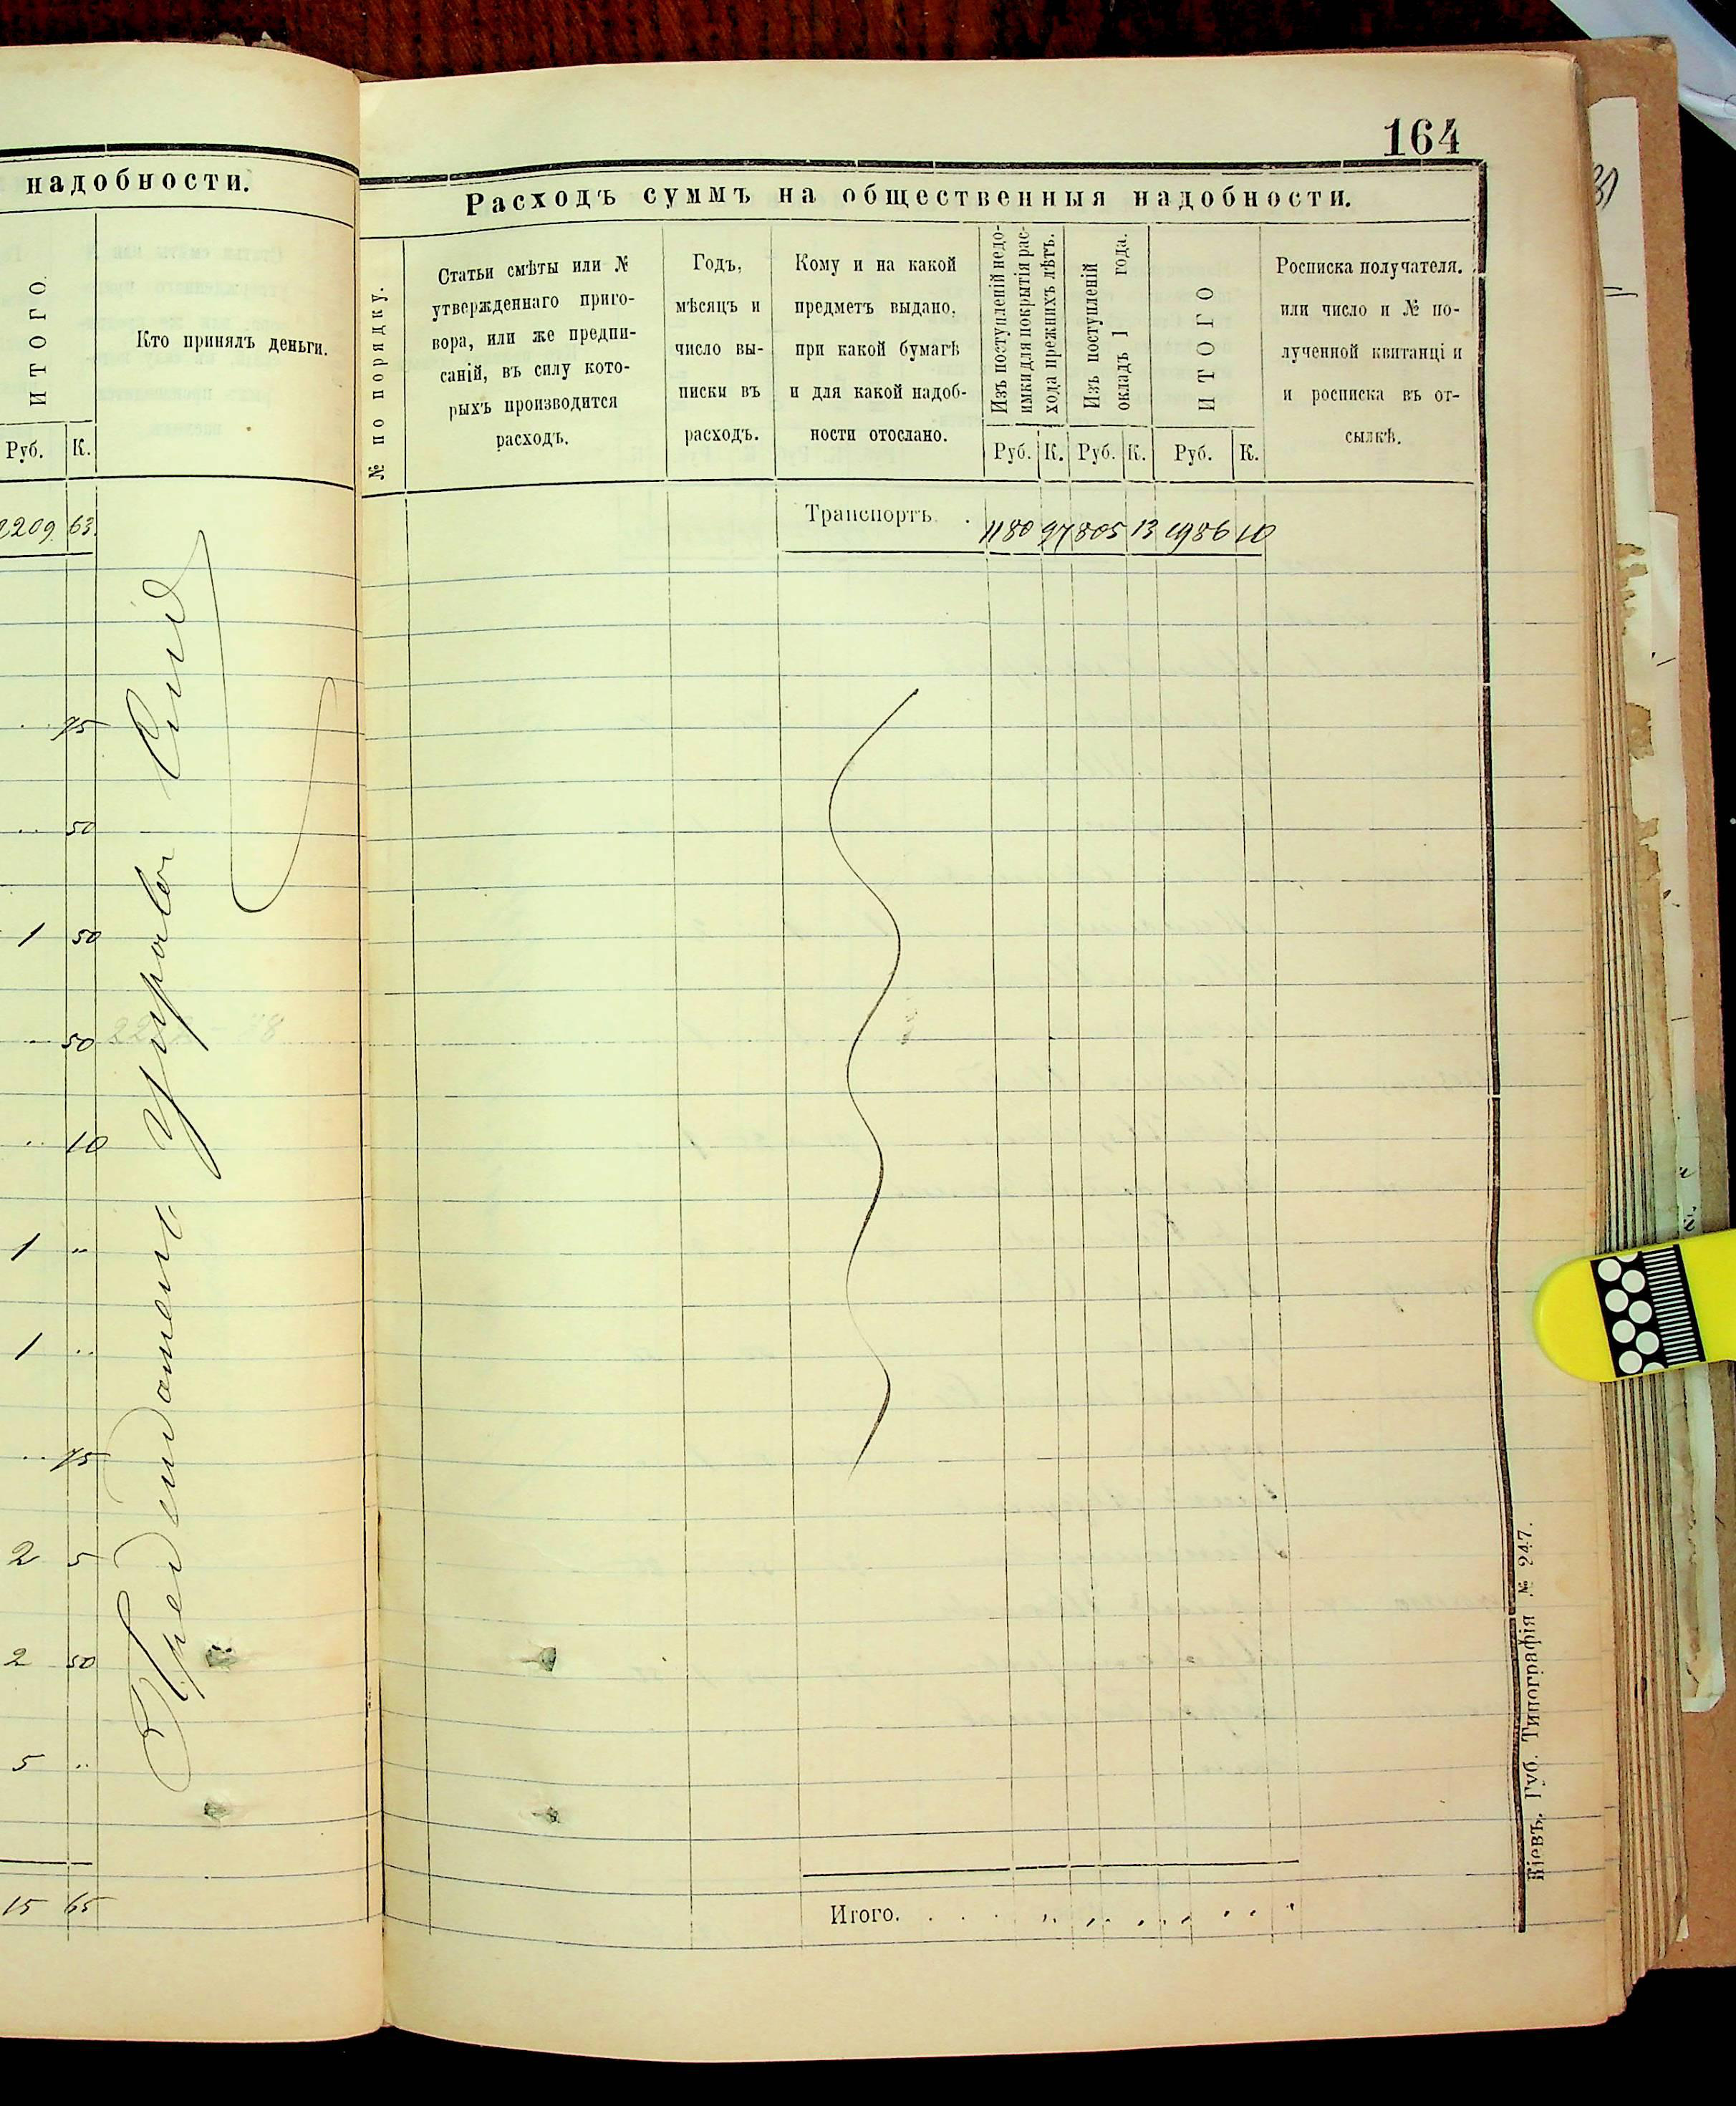 надобности.
ИТОГО.
Кто принялъ деньги.
Руб. К.
2209 63
75
50
1 50
50
10
1 "
1 "
75
2 5
2 50
5 "
15 65
управы
164
Расходъ суммъ на общественныя надобности.
№ по порядку.
Статьи смѣты или №
утвержденнаго приго-
вора, или же предпи-
саній, въ силу кото-
рыхъ производится
расходъ.
Годъ,
мѣсяцъ и
число вы-
писки въ
расходъ.
Кому и на какой
предметъ выдано,
при какой бумагѣ
и для какой надоб-
ности отослано.
Изъ поступленій недо-
имки для покрытія рас-
хода прежнихъ лѣтъ.
Изъ поступленій
окладъ 1 года.
ИТОГО
Росписка получателя.
или число и № по-
лученной квитанціи
и росписка въ от-
сылкѣ.
Руб. К. Руб. К. Руб. К.
Транспортъ . 1180 97 805 13 1986 10
Итого.
Кіевъ. Губ. Типографія № 247.